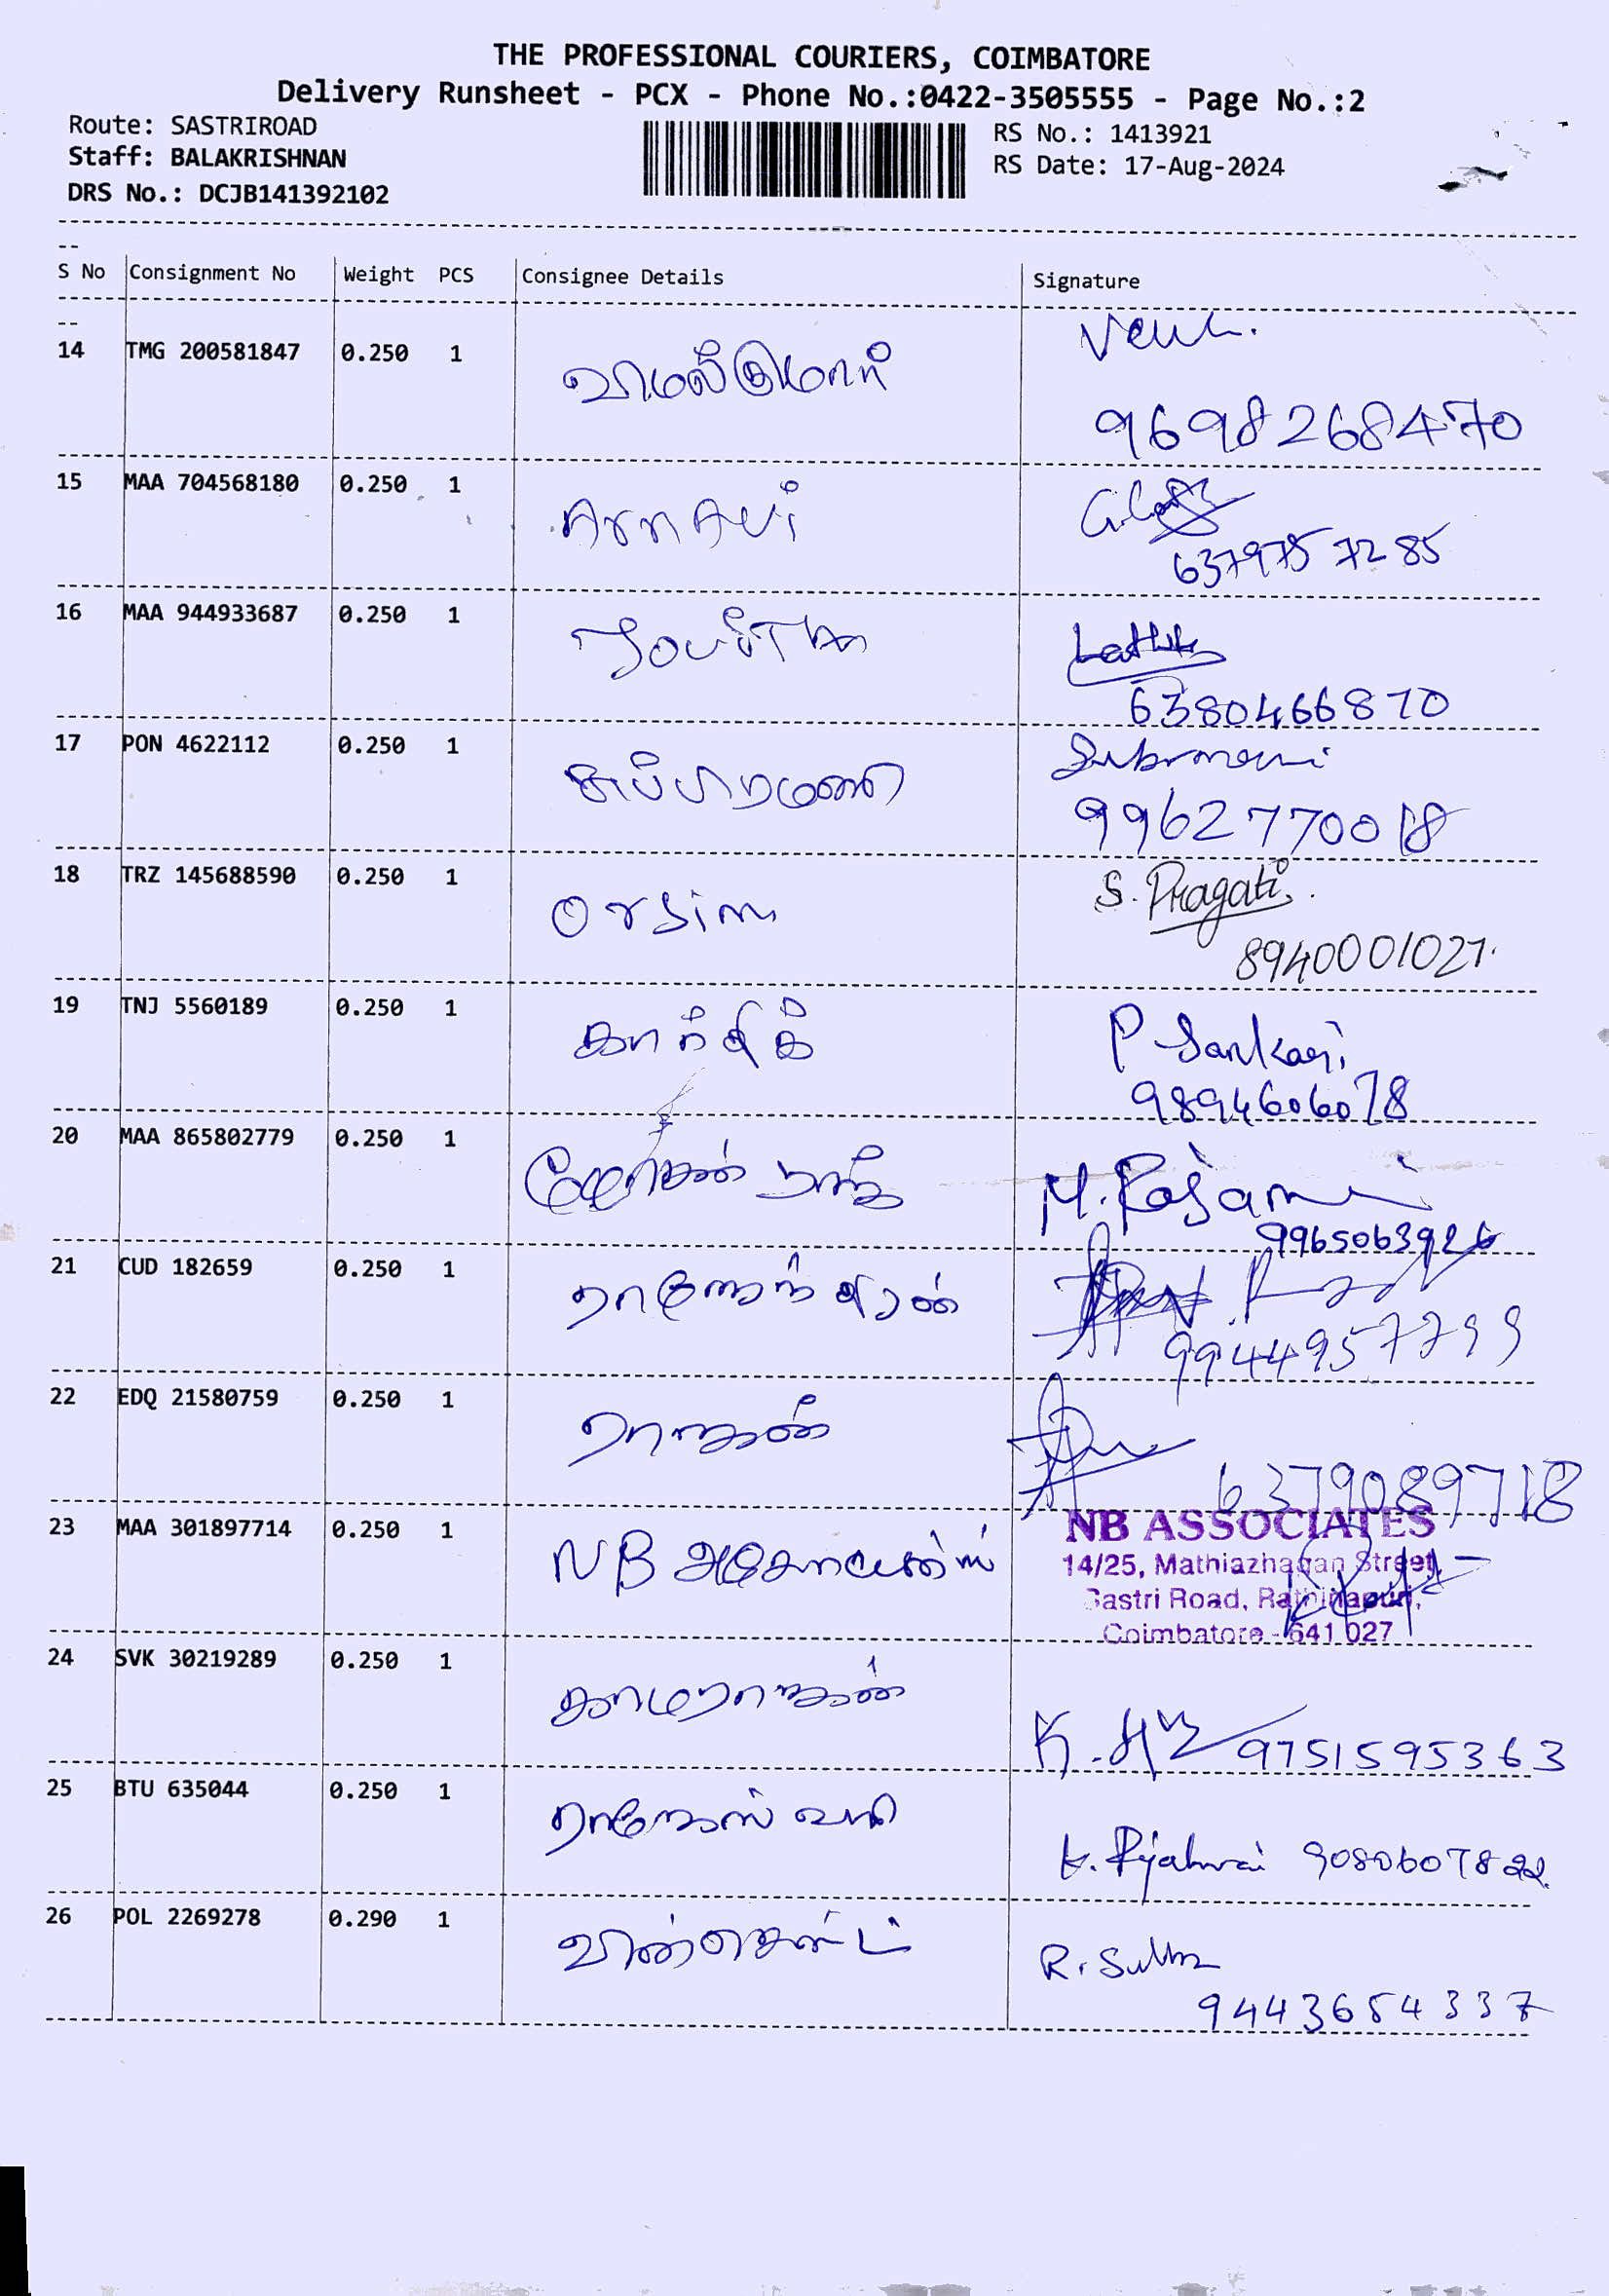 THE PROFESSIONAL COURIERS, COIMBATORE
Delivery Runsheet - PCX - Phone No.:0422-3505555 - Page No.:2
Route: SASTRIROAD
Staff: BALAKRISHNAN
DRS No.: DCJB141392102
RS No.: 1413921
RS Date: 17-Aug-2024
S No Consignment No Weight PCS Consignee Details Signature
14 TMG 200581847 0.250 1 விமல்குமார்
9698268470
15 MAA 704568180 0.250 1
6379757285
16 MAA 944933687 0.250 1
6380466870
17 PON 4622112 0.250 1 சுப்பிரமணி Submani
9962770018
18 TRZ 145688590 0.250 1 S. Pragati.
8940001027.
19 TNJ 5560189 0.250 1 கார்திக் P Sankari
9894606078
20 MAA 865802779 0.250 1 M. Rajamani
9965063926
21 CUD 182659 0.250 1 ராஜேந்திரன்
9944957799
22 EDQ 21580759 0.250 1 ராஜன்
6379089718
23 MAA 301897714 0.250 1 NB அசோசியன்ஸ் NB ASSOCIATES
14/25, Mathiazhagan Street,
Sastri Road, Rathinapuri,
Coimbatore - 641 027
24 SVK 30219289 0.250 1 காமராஜன்
9751595363
25 BTU 635044 0.250 1 ராஜேஸ்வரி
9080607822
26 POL 2269278 0.290 1 வின்சென்ட்
9443654337